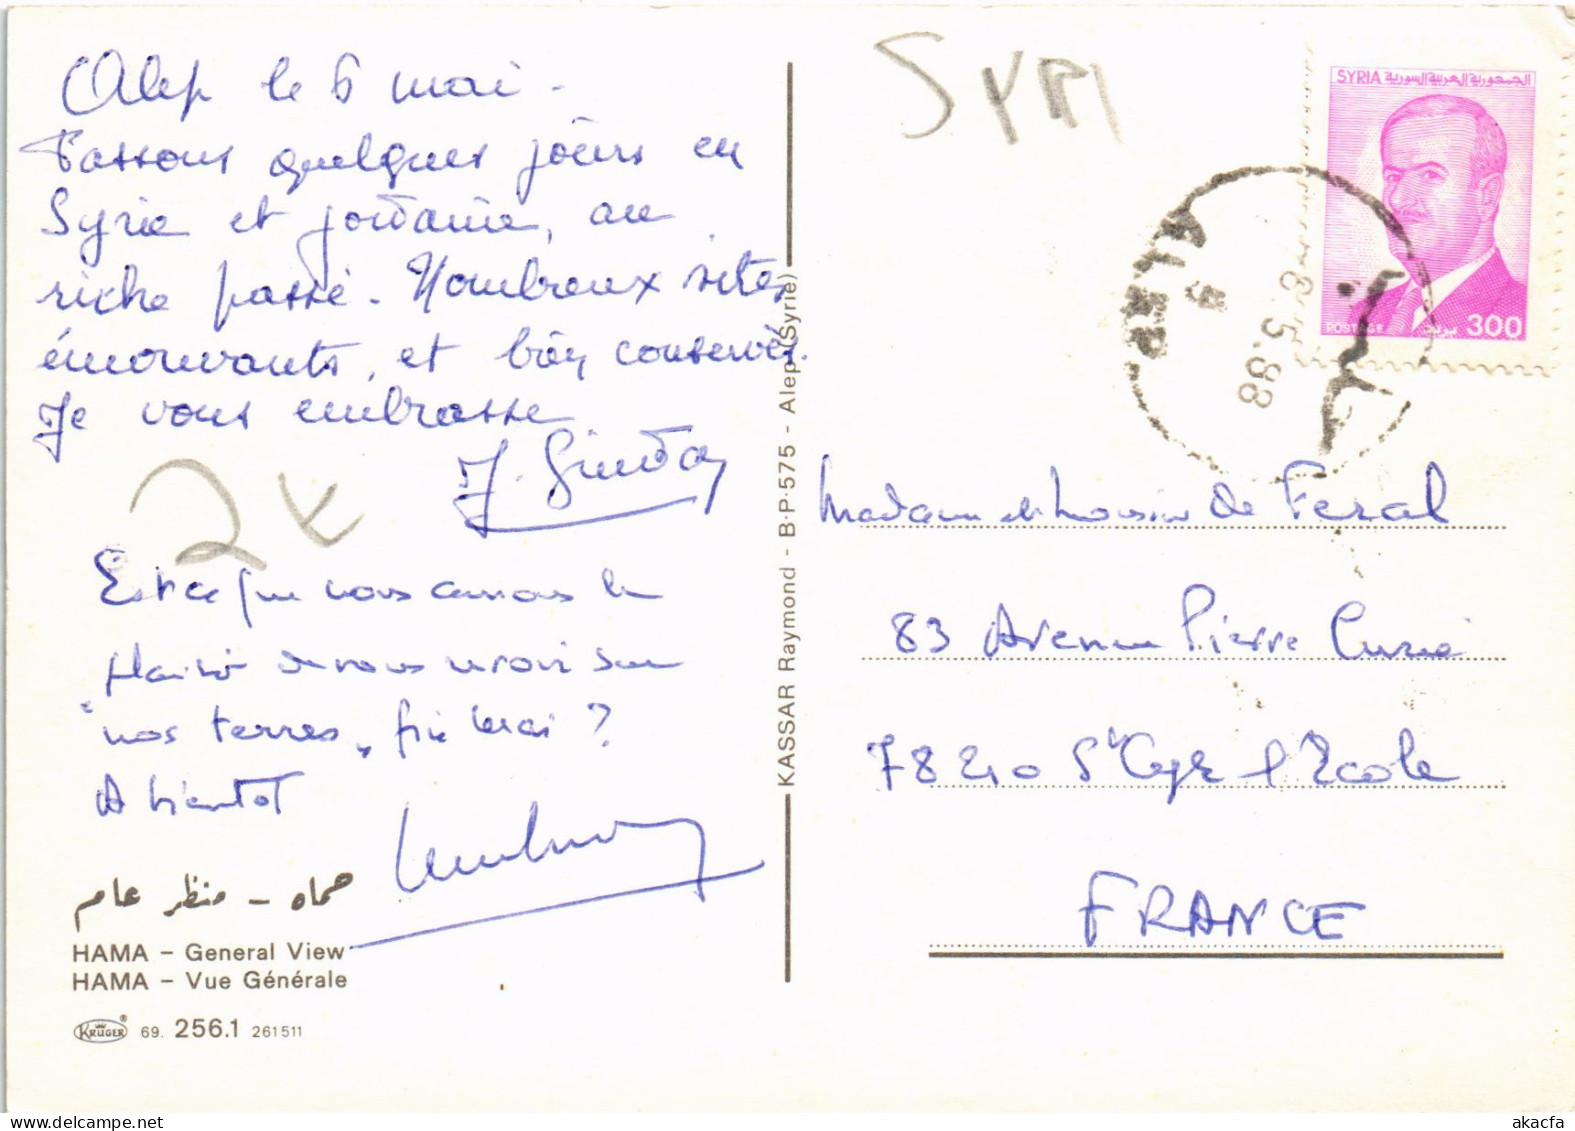 Alep le 6 mai -
Passons quelques jours en
Syrie et Jordanie, au
riche passé. Nombreux sites
émouvants, et bien conservés.
Je vous embrasse
J.
2 €
Est ce que nous aurons le
plaisir de vous revoir sur
"nos terres"
?
A bientot
حماه - منظر عام
HAMA - General View
HAMA - Vue Générale
KRÜGER ® 69. 256.1 261511
KASSAR Raymond - B.P.575 - Alep (Syrie)
SYRI
SYRIA الجمهورية العربية السورية
POSTAGE بريد 300
ALEP
8.5.88
Madame et Monsieur de Feral
83 Avenue Pierre Curie
78210 St Cyr l'Ecole
FRANCE
akacfa